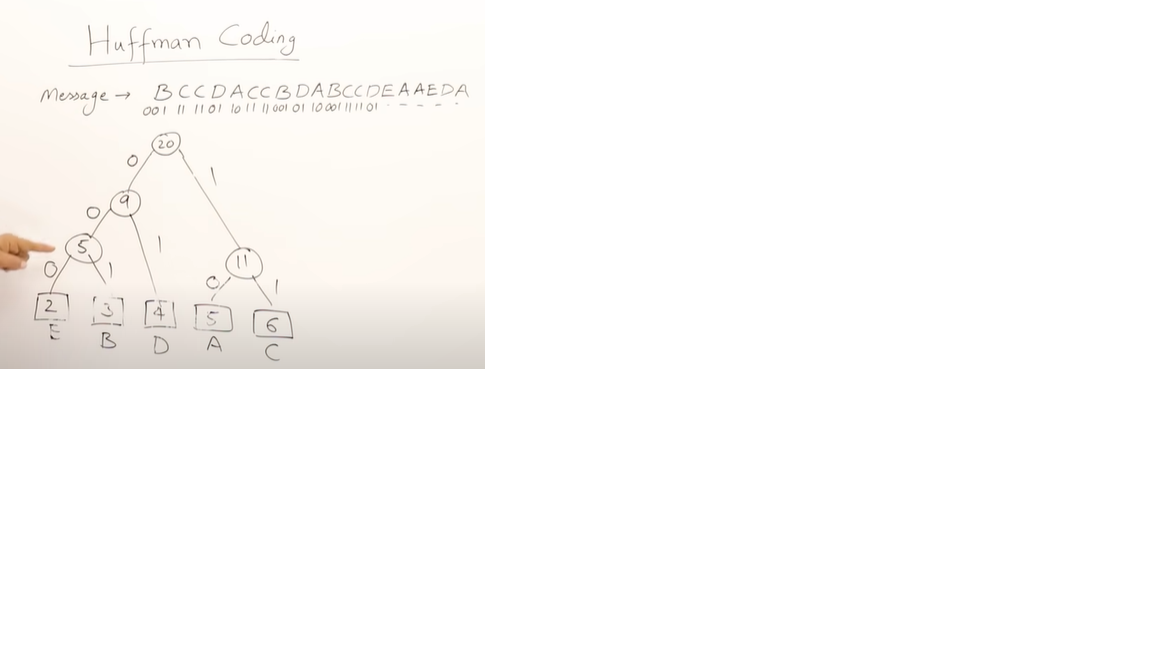 Huffman Coding
Message → BCCDACCBDABCCDEAAEDA
001 11 11 01 10 11 11 001 01 10 001 11 11 01 - - - - -
20
0 1
9
0 1
5 11
0 1 0 1
2 3 4 5 6
E B D A C